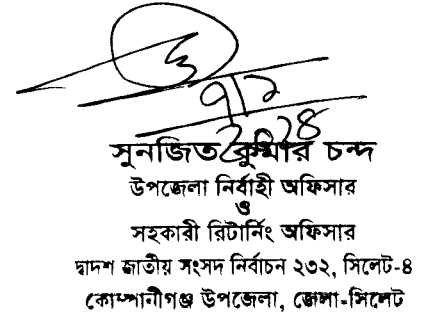 সুনজিত কুমার চন্দ
উপজেলা নির্বাহী অফিসার
ও
সহকারী রিটার্নিং অফিসার
দ্বাদশ জাতীয় সংসদ নির্বাচন ২৩২, সিলেট-৪
কোম্পানীগঞ্জ উপজেলা, জেলা-সিলেট